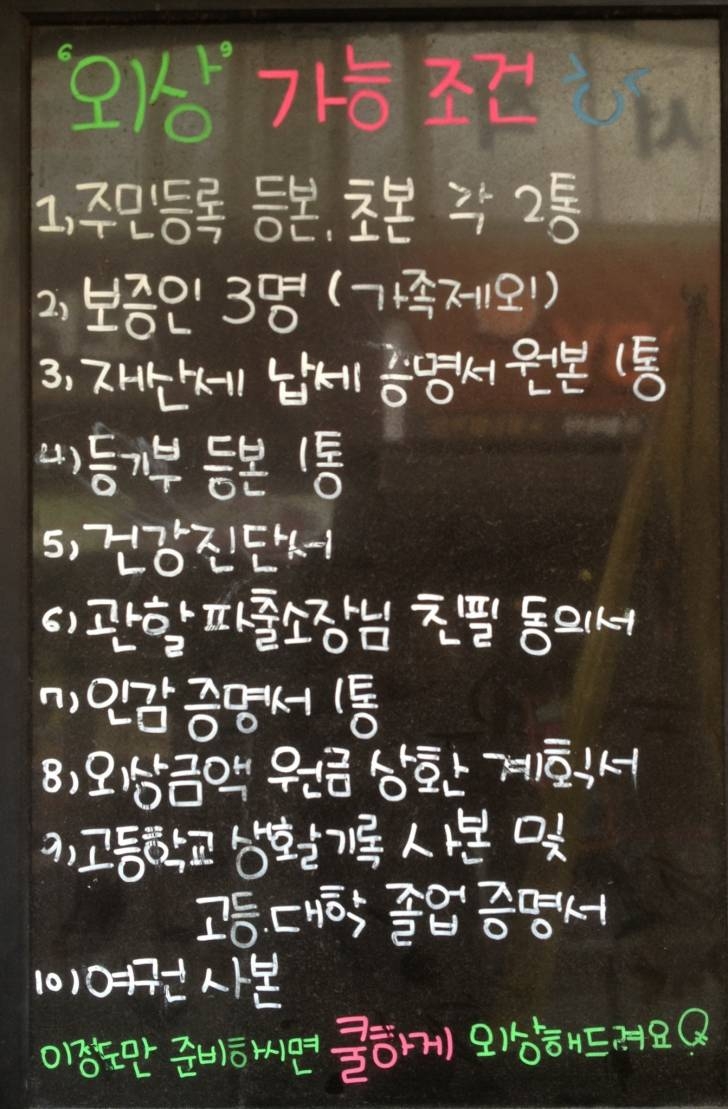 "외상" 가능 조건
1) 주민등록 등본, 초본 각 2통
2) 보증인 3명 (가족제외)
3) 재산세 납세 증명서 원본 1통
4) 등기부 등본 1통
5) 건강진단서
6) 관할파출소장님 친필 동의서
7) 인감증명서 1통
8) 외상금액 원금 상환 계획서
9) 고등학교 상활기록 사본 및
고등.대학 졸업 증명서
10) 여권 사본
이정도만 준비하시면 쿨하게 외상해드려요